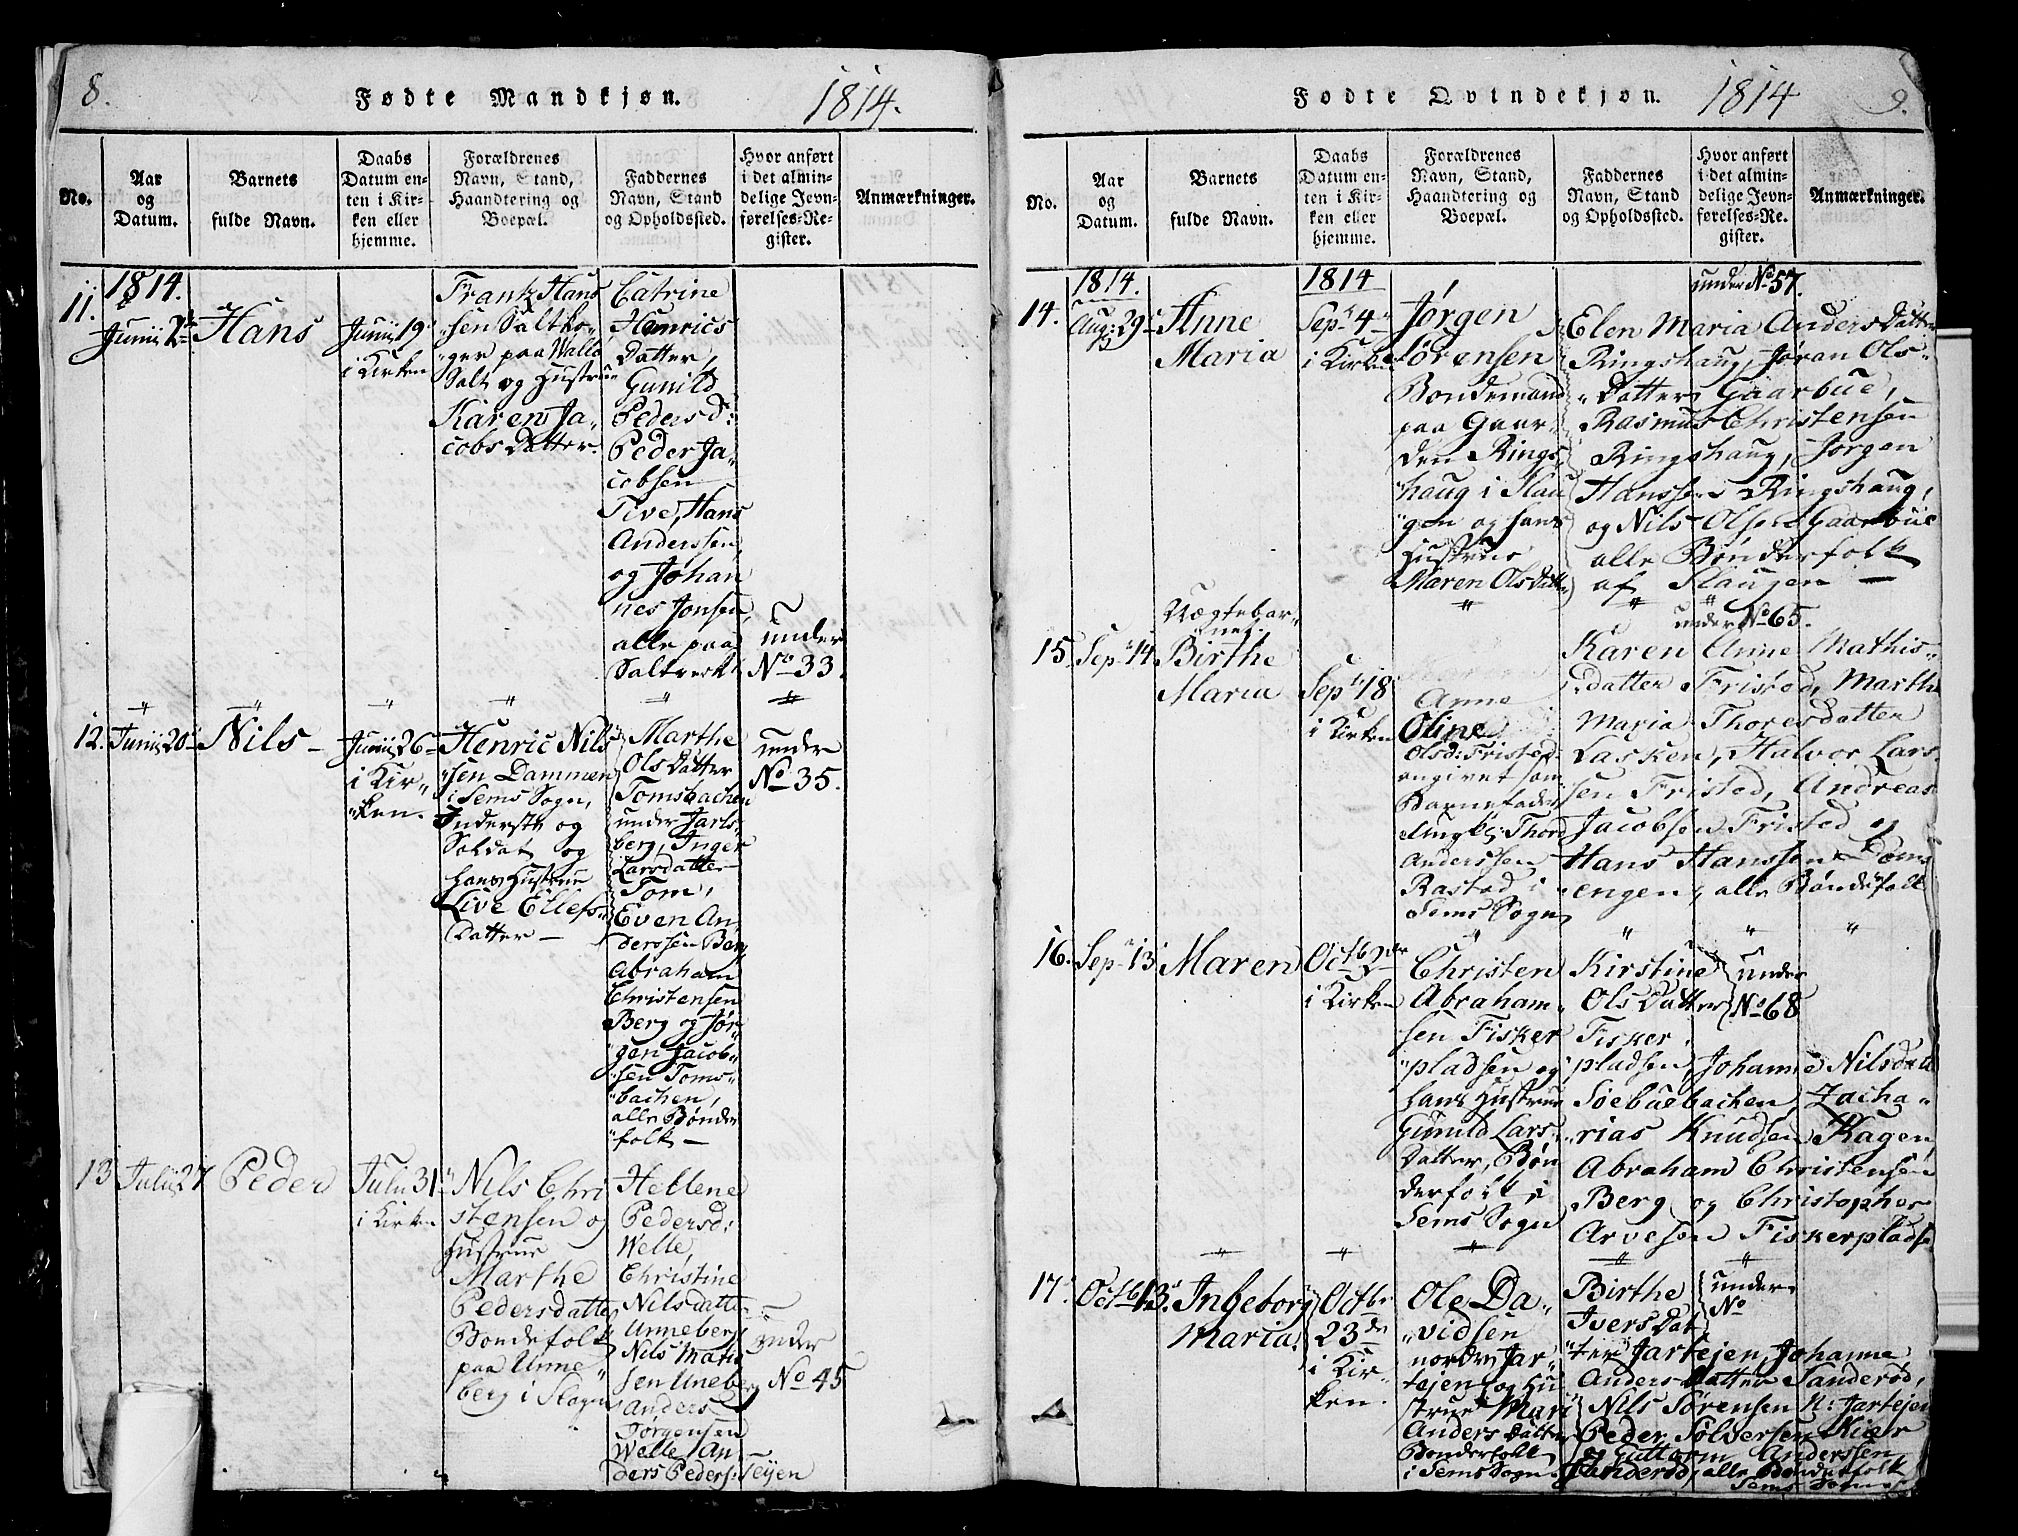 8.
Fødte Mandkjøn.
1814.
No.
Aar
og
Datum.
Barnets
fulde Navn.
Daabs
Datum en-
ten i Kir-
ken eller
hjemme.
Forældrenes
Navn, Stand,
Haandtering og
Boepæl.
Faddernes
Navn, Stand
og Opholdssted.
Hvor anført
i det almin-
delige Jevn-
førelses-Re-
gister.
Anmærkninger.
11.
1814.
Junii 2
Hans
Junii 19
i Kirken
Frantz Hans
sen Saltko-
ger paa Vallø
Salt og Hustrue
Karen Ja-
cobs Datter.
Catrine
Henrics
Datter,
Gunild
Pedersd:
Peder Ja-
cobsen
Tive, Hans
Anderssen
og Johan
nes Jonsen,
alle paa
Saltverk
under
No 33.
12.
Junii 20
Nils
Junii 26
i Kir-
ken.
Henric Nils
sen Dammen
i Sems Sogn,
Inderste og
Soldat og
hans Hustrue
Live Ellefs-
Datter
Marthe
Ols Datter
Tomsbachen
under Jarls-
berg, Inger
Larsdatter
Tom,
Even An-
derssen Berg
Abraham
Christensen
Berg og Jør-
gen Jacob-
sen Toms-
bachen,
alle Bønder
folk
under
No 35.
13
Julii 27
Peder
Julii 31
i Kirken
Nils Chri
stensen og
Hustrue
Marthe
Pedersdatter
Bondefolk
paa Unne
berg i Slagen
Hellene
Pedersd:
Welle,
Christine
Nilsdatter
Unneberg
Nils Mathi
sen Uneberg
Anders
Jørgensen
Welle, An-
ders Peders: Teijen
under
No 45
Fødte Qvindekjøn.
1814
9.
No.
Aar
og
Datum.
Barnets
fulde Navn.
Daabs
Datum en-
ten i Kir-
ken eller
hjemme.
Forældrenes
Navn, Stand,
Haandtering og
Boepæl.
Faddernes
Navn, Stand
og Opholdssted.
Hvor anført
i det almin-
delige Jevn-
førelses-Re-
gister.
Anmærkninger.
14.
1814.
Aug: 29
Anne
Maria
1814
Sep 4
i Kirken
Jørgen
Sørensen
Bondemand
paa Gaar-
den Rings
haug i Slau
gen og hans
Hustrue
Maren Olsdatter
under No 57.
Elen Maria Anders Datter
Ringshaug, Jøran Ols-
Datter Gaarbue,
Rasmus Christensen
Ringshaug, Jørgen
Hanssen Ringshaug,
og Nils Olsen Gaarbue
alle Bønderfolk
af Slaugen
15.
Sep 14
Uægtebar-
net
Birthe
Maria
Sep 18
i Kirken
Anne
Oline
Olsd: Fristed
angivet som
Barnefader
Ungkl: Thord
Anderssen
Rastad i
Sems Sogn
under No 65.
Karen Anne Mathis-
datter Fristad, Marthe
Maria Thoresdatter
Lasken, Halvor Lars
sen Fristad, Andreas
Jacobsen Fristad og
Hans Hanssen Doms
engen, alle Bøndefolk
16.
Sep 13
Maren
Oct 2
i Kirken
Christen
Abraham-
sen Fisker
pladsen og
hans Hustrue
Gunild Lars-
Datter, Bøn
derfolk i
Sems Sogn
Kirstine
Ols Datter
Fisker
pladsen, Johanne Nilsdat
Søebuebachen, Zacha-
rias Knudsen Kagen,
Abraham Christensen
Berg og Christopher
Arvesen Fiskerpladsen
under
No 68
17.
Octb 13.
Ingeborg
Maria.
Octbr
23de
i Kir-
ken.
Ole Da-
vidsen
nordre Jar-
tejen og Hu
strue Mari
Anders Datter
Bønderfolk
i Sems Sogn
Birthe
Ivers Dat
ter Jartejen, Johanne
Anders Datter Sanderød,
Nils Sørensen N: Jartejen
Peder Solversen Kiær
og Guttorm Anderssen
Sanderød, alle Bondefolk
Sems Sogn
under
No